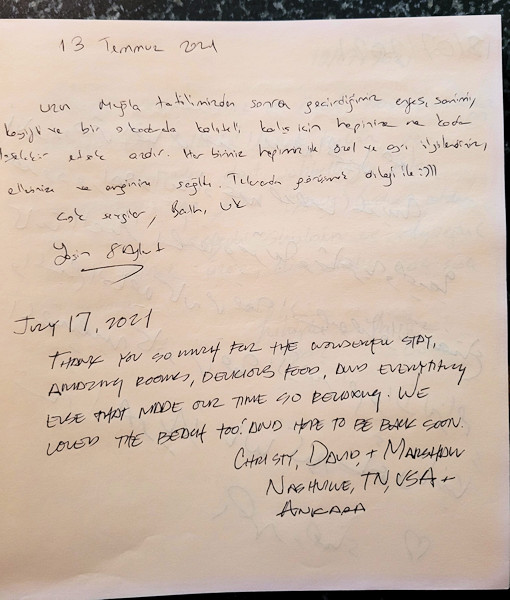 13 Temmuz 2021
Uzun Muğla tatilimizden sonra geçirdiğimiz samimi,
keyifli ve bir o kadar da kaliteli, kalış için hepinize ne kadar
teşekkür etsek azdır. Her biriniz hepimizle özel ve ayrı ilgilendiniz,
ellerinize ve emeğinize sağlık. Tekrarda görüşmek dileği ile :)))
Çok sevgiler, Bath, UK
July 17, 2021
THANK YOU SO MUCH FOR THE WONDERFUL STAY,
AMAZING ROOMS, DELICIOUS FOOD, AND EVERYTHING
ELSE THAT MADE OUR TIME SO RELAXING. WE
LOVED THE BEACH TOO! AND HOPE TO BE BACK SOON.
CHRISTY, DAVID, + MARSHALL
NASHVILLE, TN, USA +
ANKARA